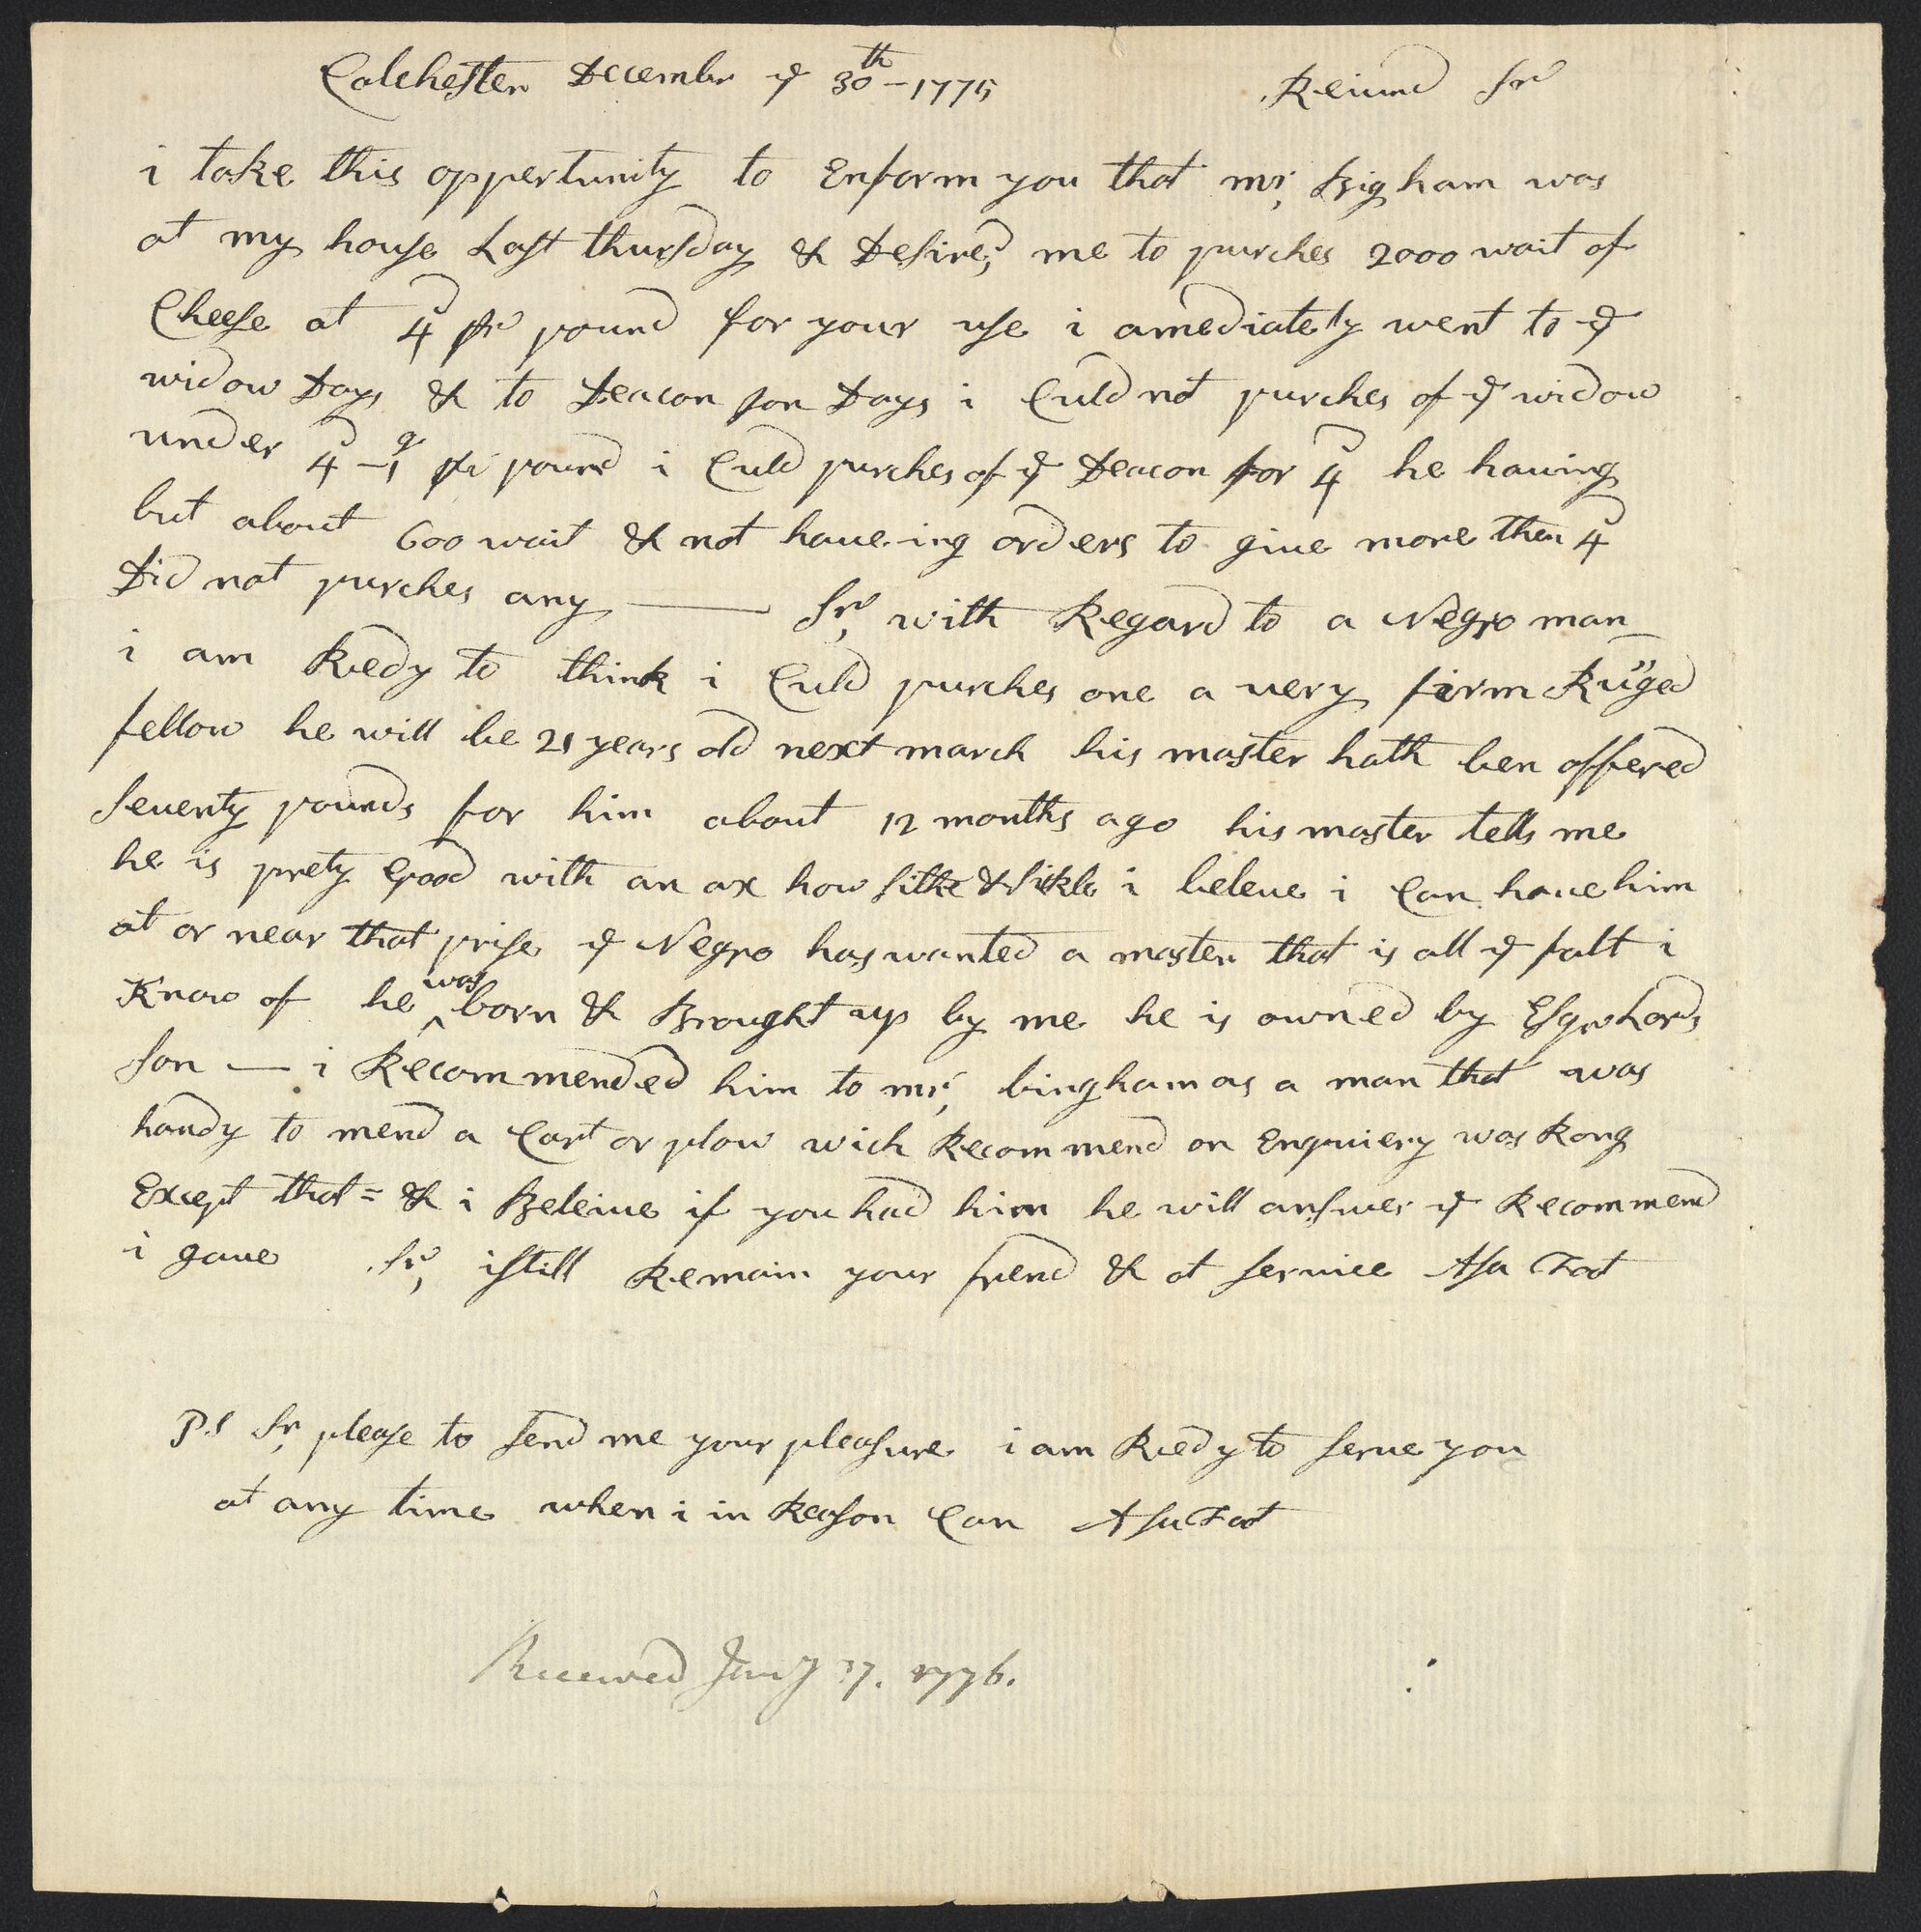 Colchester December ye 30th - 1775 Reiund Sr
i take this oppertunity to Enform you that mr; Bigham was
at my house Last thursday & Desired me to purches 2000 wait of
Cheese at 4d pr pound for your use i amediately went to ye
widow Days & to Deacon Jon Days i Culd not purches of ye widow
under 4d - 1q pr pound i Culd purches of ye Deacon for 4d he having
but about 600 wait & not haveing orders to give more then 4d
Did not purches any —— Sr, with Regard to a Negro man
i am Redy to think i Culd purches one a very firm Ruged
fellow he will be 21 years old next march his master hath ben offered
Seventy pounds for him about 12 months ago his master tells me
he is prety Good with an ax how Sithe & Sikle i beleve i Can have him
at or near that prise ye Negro has wanted a master that is all ye falt i
Know of he was born & Brought up by me he is owned by Esqr Lords
Son — i Recommended him to mr; bingham as a man that was
handy to mend a Cart or plow wich Recommend on Enquiery was Rong
Except that = & i Beleive if you had him he will answer ye Recommend
i gave Sr, i Still Remain your frend & at Service Asa Foot
P.S Sr, please to Send me your pleasure i am Redy to Serve you
at any time when i in Reason Can Asa Foot
Received Jany 1776.